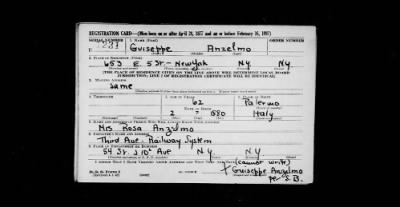 REGISTRATION CARD—(Men born on or after April 28, 1877 and on or before February 16, 1897)
SERIAL NUMBER 1. NAME (Print) ORDER NUMBER
U Guiseppe Anzelmo
2. PLACE OF RESIDENCE (Print)
653 E. 5 St. - New York N.Y. N.Y.
[THE PLACE OF RESIDENCE GIVEN ON THE LINE ABOVE WILL DETERMINE LOCAL BOARD
JURISDICTION; LINE 2 OF REGISTRATION CERTIFICATE WILL BE IDENTICAL]
3. MAILING ADDRESS
Same
4. TELEPHONE 5. AGE IN YEARS 6. PLACE OF BIRTH
62 Palermo
DATE OF BIRTH
2 880 Italy
7. NAME AND ADDRESS OF PERSON WHO WILL ALWAYS KNOW YOUR ADDRESS
Mrs Rosa Anzelmo
8. EMPLOYER'S NAME AND ADDRESS
Third Ave. Railway System
9. PLACE OF EMPLOYMENT OR BUSINESS
54 St. & 10th Ave N.Y. N.Y.
I AFFIRM THAT I HAVE VERIFIED ABOVE ANSWERS AND THAT THEY ARE TRUE.
(cannot write)
D. S. S. Form 1 X Guiseppe Anzelmo
S. B.